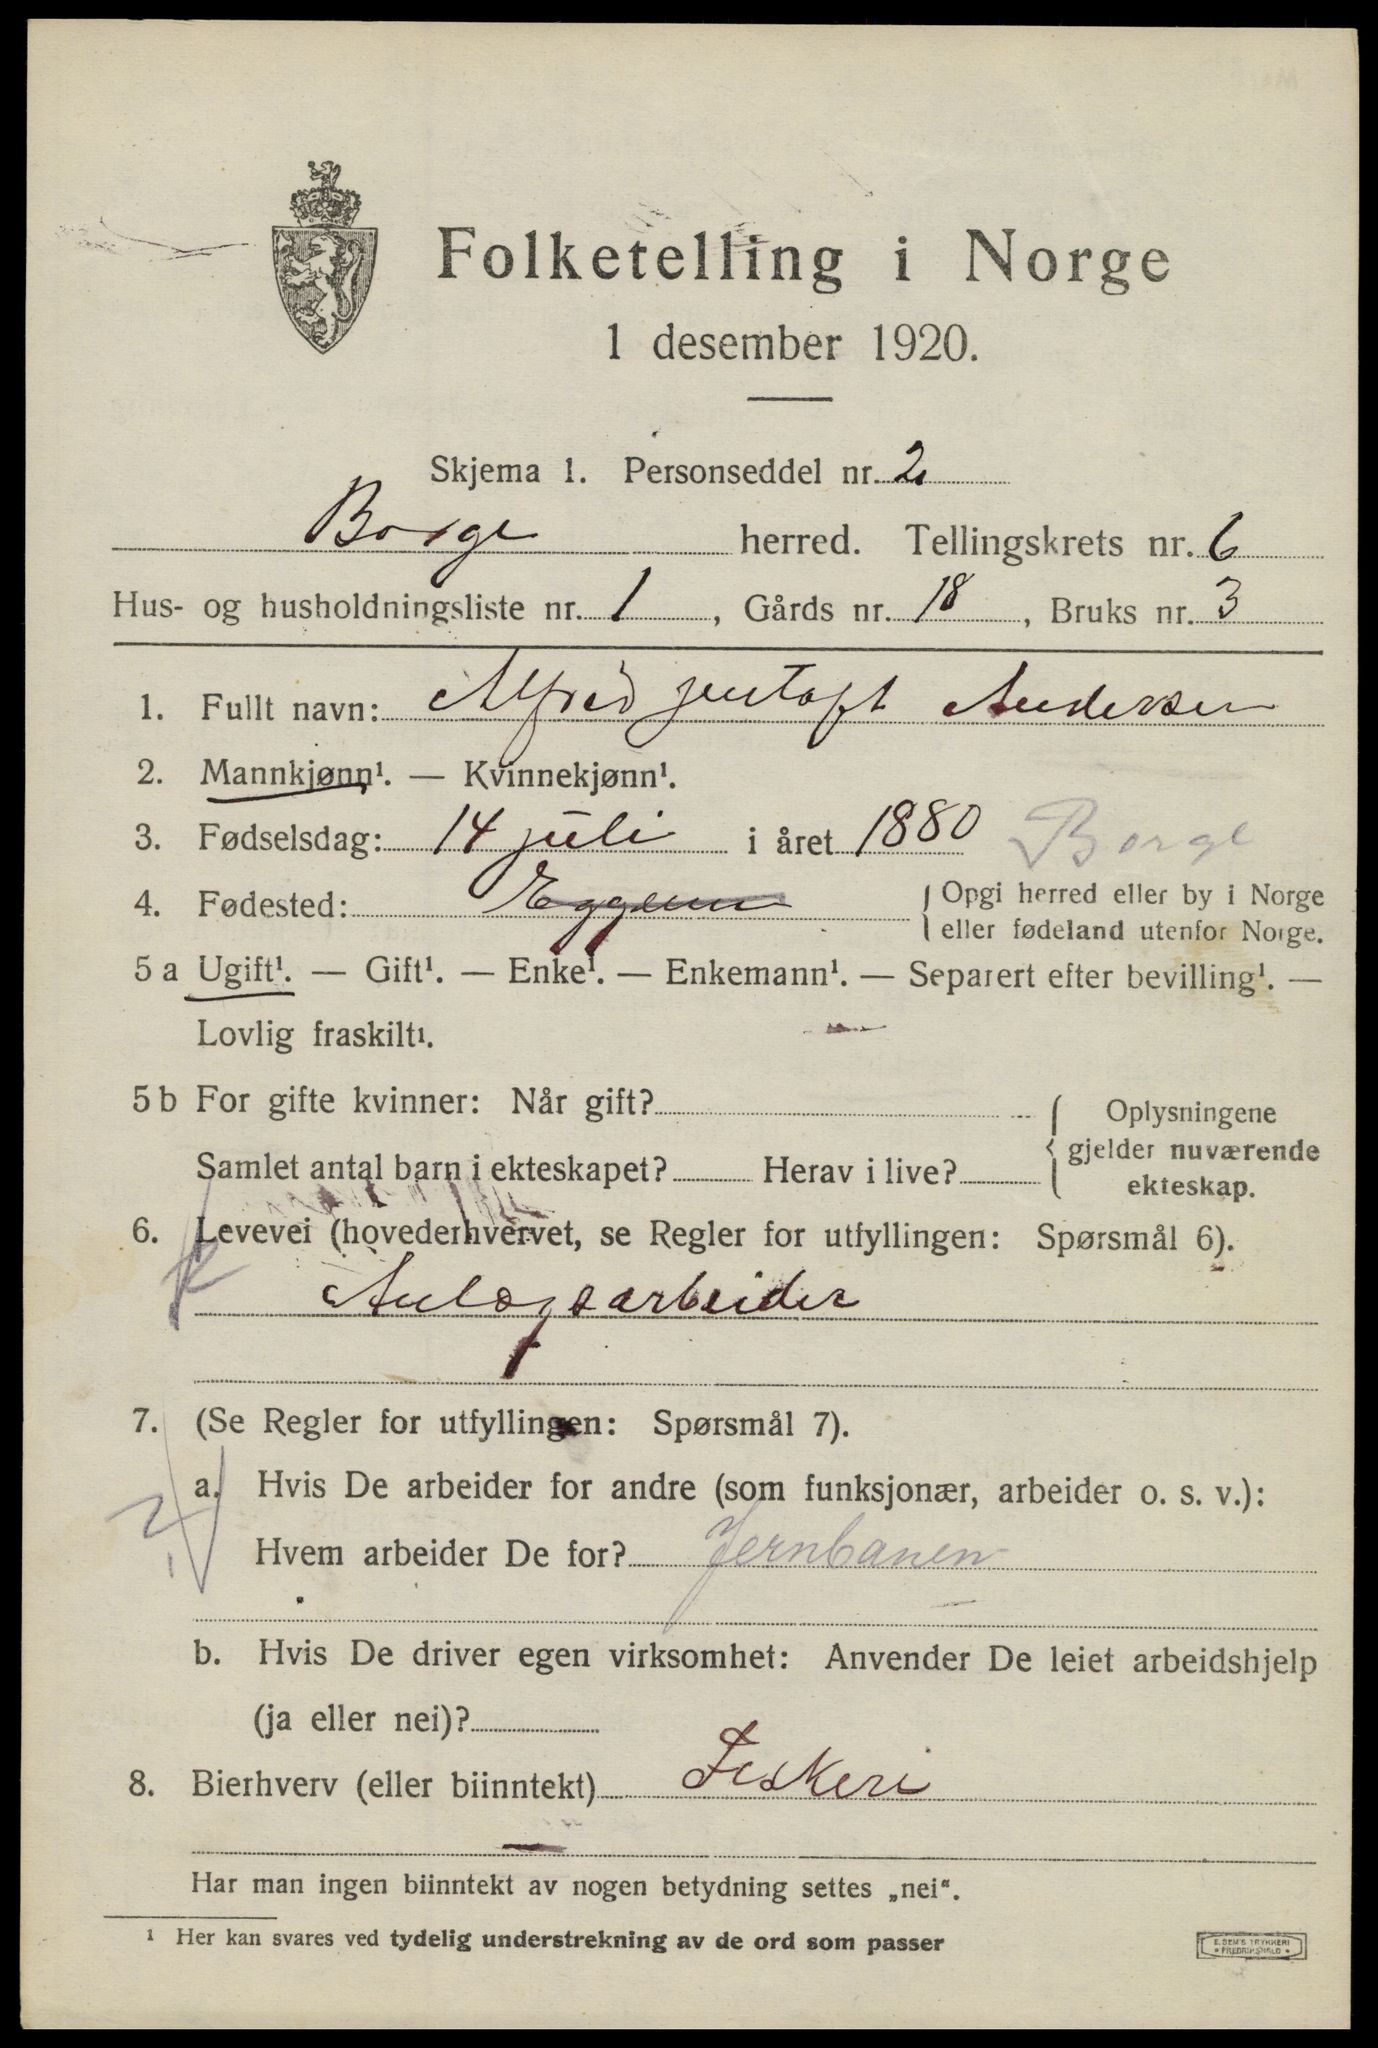 Folketelling i Norge
1 desember 1920.
Skjema 1. Personseddel nr. 2
Borge herred. Tellingskrets nr. 6
Hus- og husholdningsliste nr. 1, Gårds nr. 18, Bruks nr. 3
1. Fullt navn: Alfred Jentoft Andersen
2. Mannkjønn¹. — Kvinnekjønn¹.
3. Fødselsdag: 14 juli i året 1880 Borge
4. Fødested: Eggum { Opgi herred eller by i Norge
eller fødeland utenfor Norge.
5 a Ugift¹. — Gift¹. — Enke¹. — Enkemann¹. — Separert efter bevilling¹. —
Lovlig fraskilt¹.
5 b For gifte kvinner: Når gift? { Oplysningene
gjelder nuværende
Samlet antal barn i ekteskapet? Herav i live?
ekteskap.
6. Levevei (hovederhvervet, se Regler for utfyllingen: Spørsmål 6).
Anlægsarbeider
7. (Se Regler for utfyllingen: Spørsmål 7).
a. Hvis De arbeider for andre (som funksjonær, arbeider o. s. v.):
Hvem arbeider De for? Jernbanen
b. Hvis De driver egen virksomhet: Anvender De leiet arbeidshjelp
(ja eller nei)?
8. Bierhverv (eller biinntekt) Fiskeri
Har man ingen biinntekt av nogen betydning settes „nei“.
¹ Her kan svares ved tydelig understrekning av de ord som passer
E. SEM'S TRYKKERI
FREDRIKSHALD